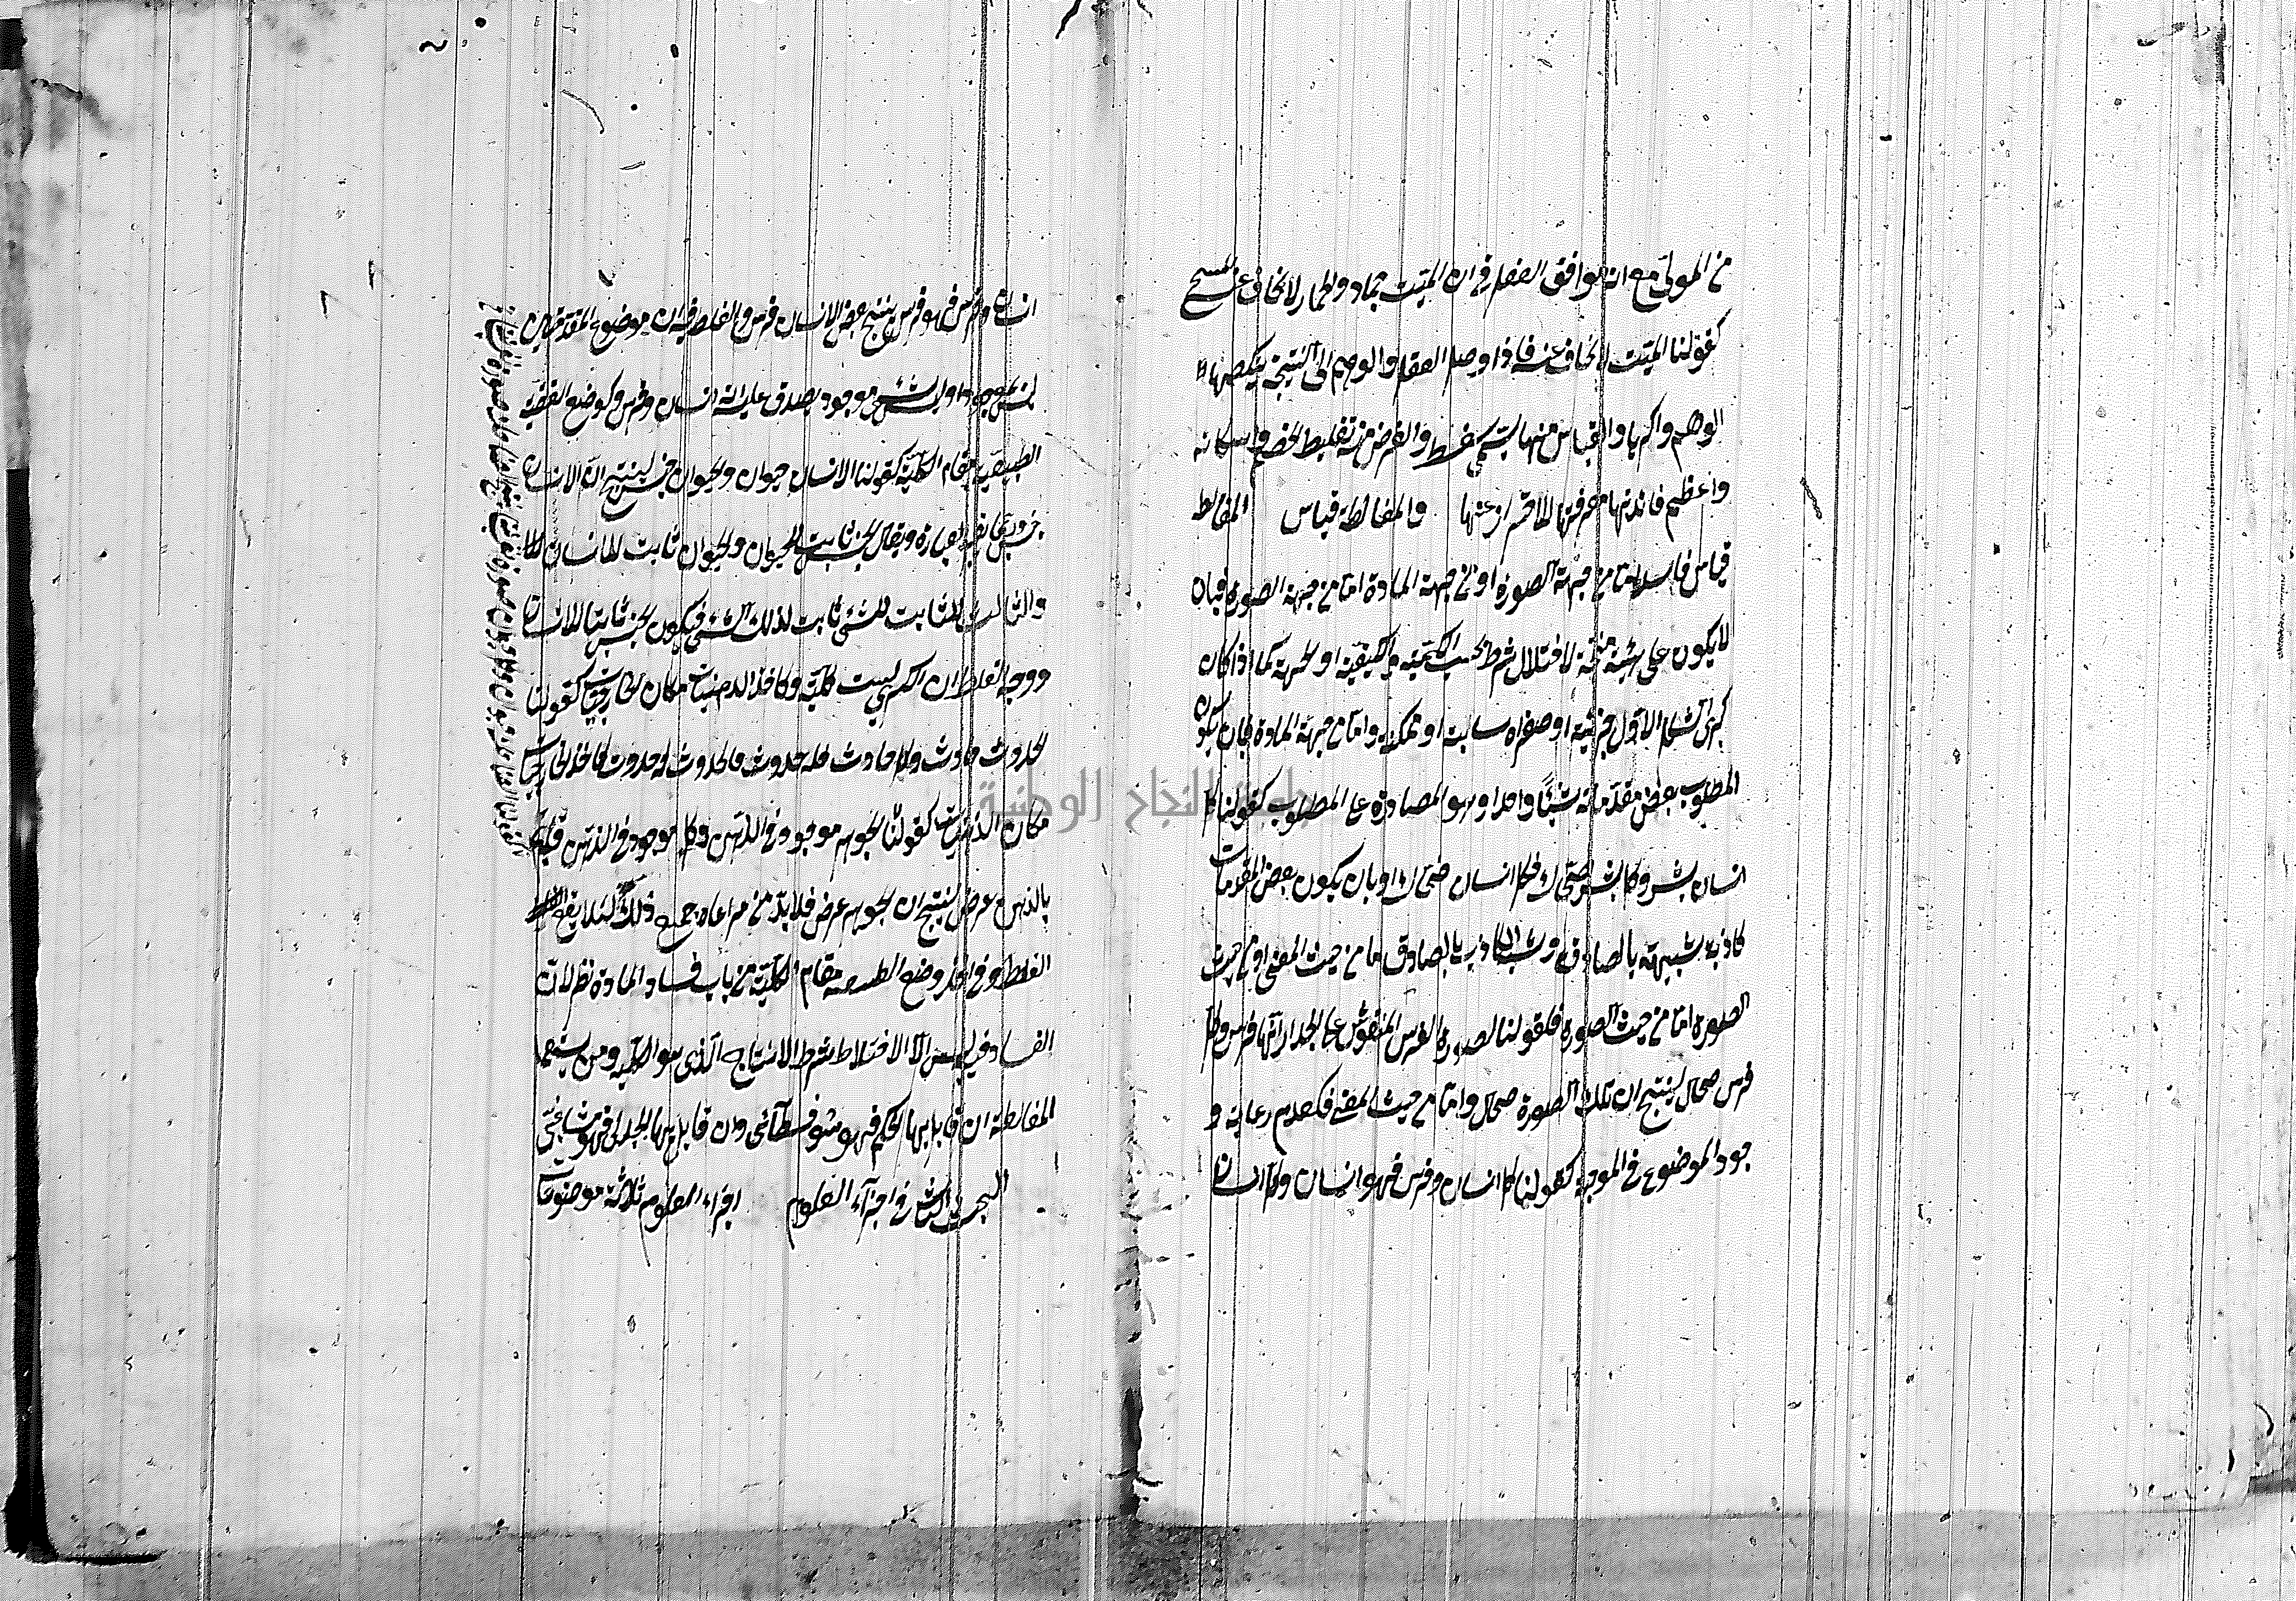 من الموتى مع انه يوافق العقل في ان الميت جماد والجماد لا يخاف عنه المنتج
كقولنا الميت لا يخاف عنه فاذا وصل العقل والوهم الى النتيجة ينكصها
الوهم وانكرها والقياس منها يسمى سفسطة والغرض منه تغليط الخصم واسكاته
واعظم فائدتها معرفتها للاحتراز عنها والمغالطة قياس المغالطة
قياس فاسد اما من جهة الصورة او من جهة المادة اما من جهة الصورة فبان
لا يكون على هيئة منتجة لاختلال شرط بحسب الكمية والكيفية او الجهة كما اذا كان
كبرى الشكل الاول جزئية او صغراه سالبة او ممكنة واما من جهة المادة فبان يكون
المطلوب بعض مقدماته شيئا واحدا وهو المصادرة على المطلوب كقولنا كل
انسان بشر وكل بشر ضحاك فكل انسان ضحاك او بان يكون بعض المقدمات
كاذبة شبيهة بالصادق وشبه الكاذب بالصادق اما من حيث المعنى او من حيث
الصورة اما من حيث الصورة فكقولنا لصورة الفرس المنقوش على الجدار انها فرس وكل
فرس صهال ينتج ان تلك الصورة صهال واما من حيث المعنى فكعدم رعاية و
جود الموضوع في الموجبة كقولنا كل انسان وفرس فهو انسان وكل انسان
انسان وفرس فهو فرس ينتج بعض الانسان فرس والغلط فيه ان موضوع المقدمتين
ليس بموجود اوليس شيء موجود يصدق عليه انه انسان وفرس وكوضع القضية
الطبيعية مقام الكلية كقولنا الانسان حيوان والحيوان جنس ينتج ان الانسان
جنس وربما تغير العبارة ويقال الجنس ثابت للحيوان والحيوان ثابت للانسان
والثابت للثابت للشيء ثابت لذلك الشيء فيكون الجنس ثابتا للانسان
ووجه الغلط ان الكبرى ليست كلية وكاخذ الذهنيات مكان الخارجيات كقولنا
الحدوث حادث وكل حادث فله حدوث فالحدوث له حدوث وكاخذ الخارجيات
مكان الذهنيات كقولنا الجوهر موجود في الذهن وكل موجود في الذهن قائم
بالذهن عرض لينتج ان الجوهر عرض فلا بد من مراعاة جميع ذلك لئلا يقع
الغلط وفي اخذ وضع الطبيعية مقام الكلية من باب فساد المادة نظر لان
الفساد فيه ليس الا لاختلال شرط الانتاج الذي هو الكلية ومن يستعمل
المغالطة ان قابل بها الحكيم فهو سوفسطائي وان قابل بها الجدلي فهو مشاغبي
البحث الثاني في اجزاء العلوم اجزاء العلوم ثلاثة موضوعات
جامعة النجاح الوطنية